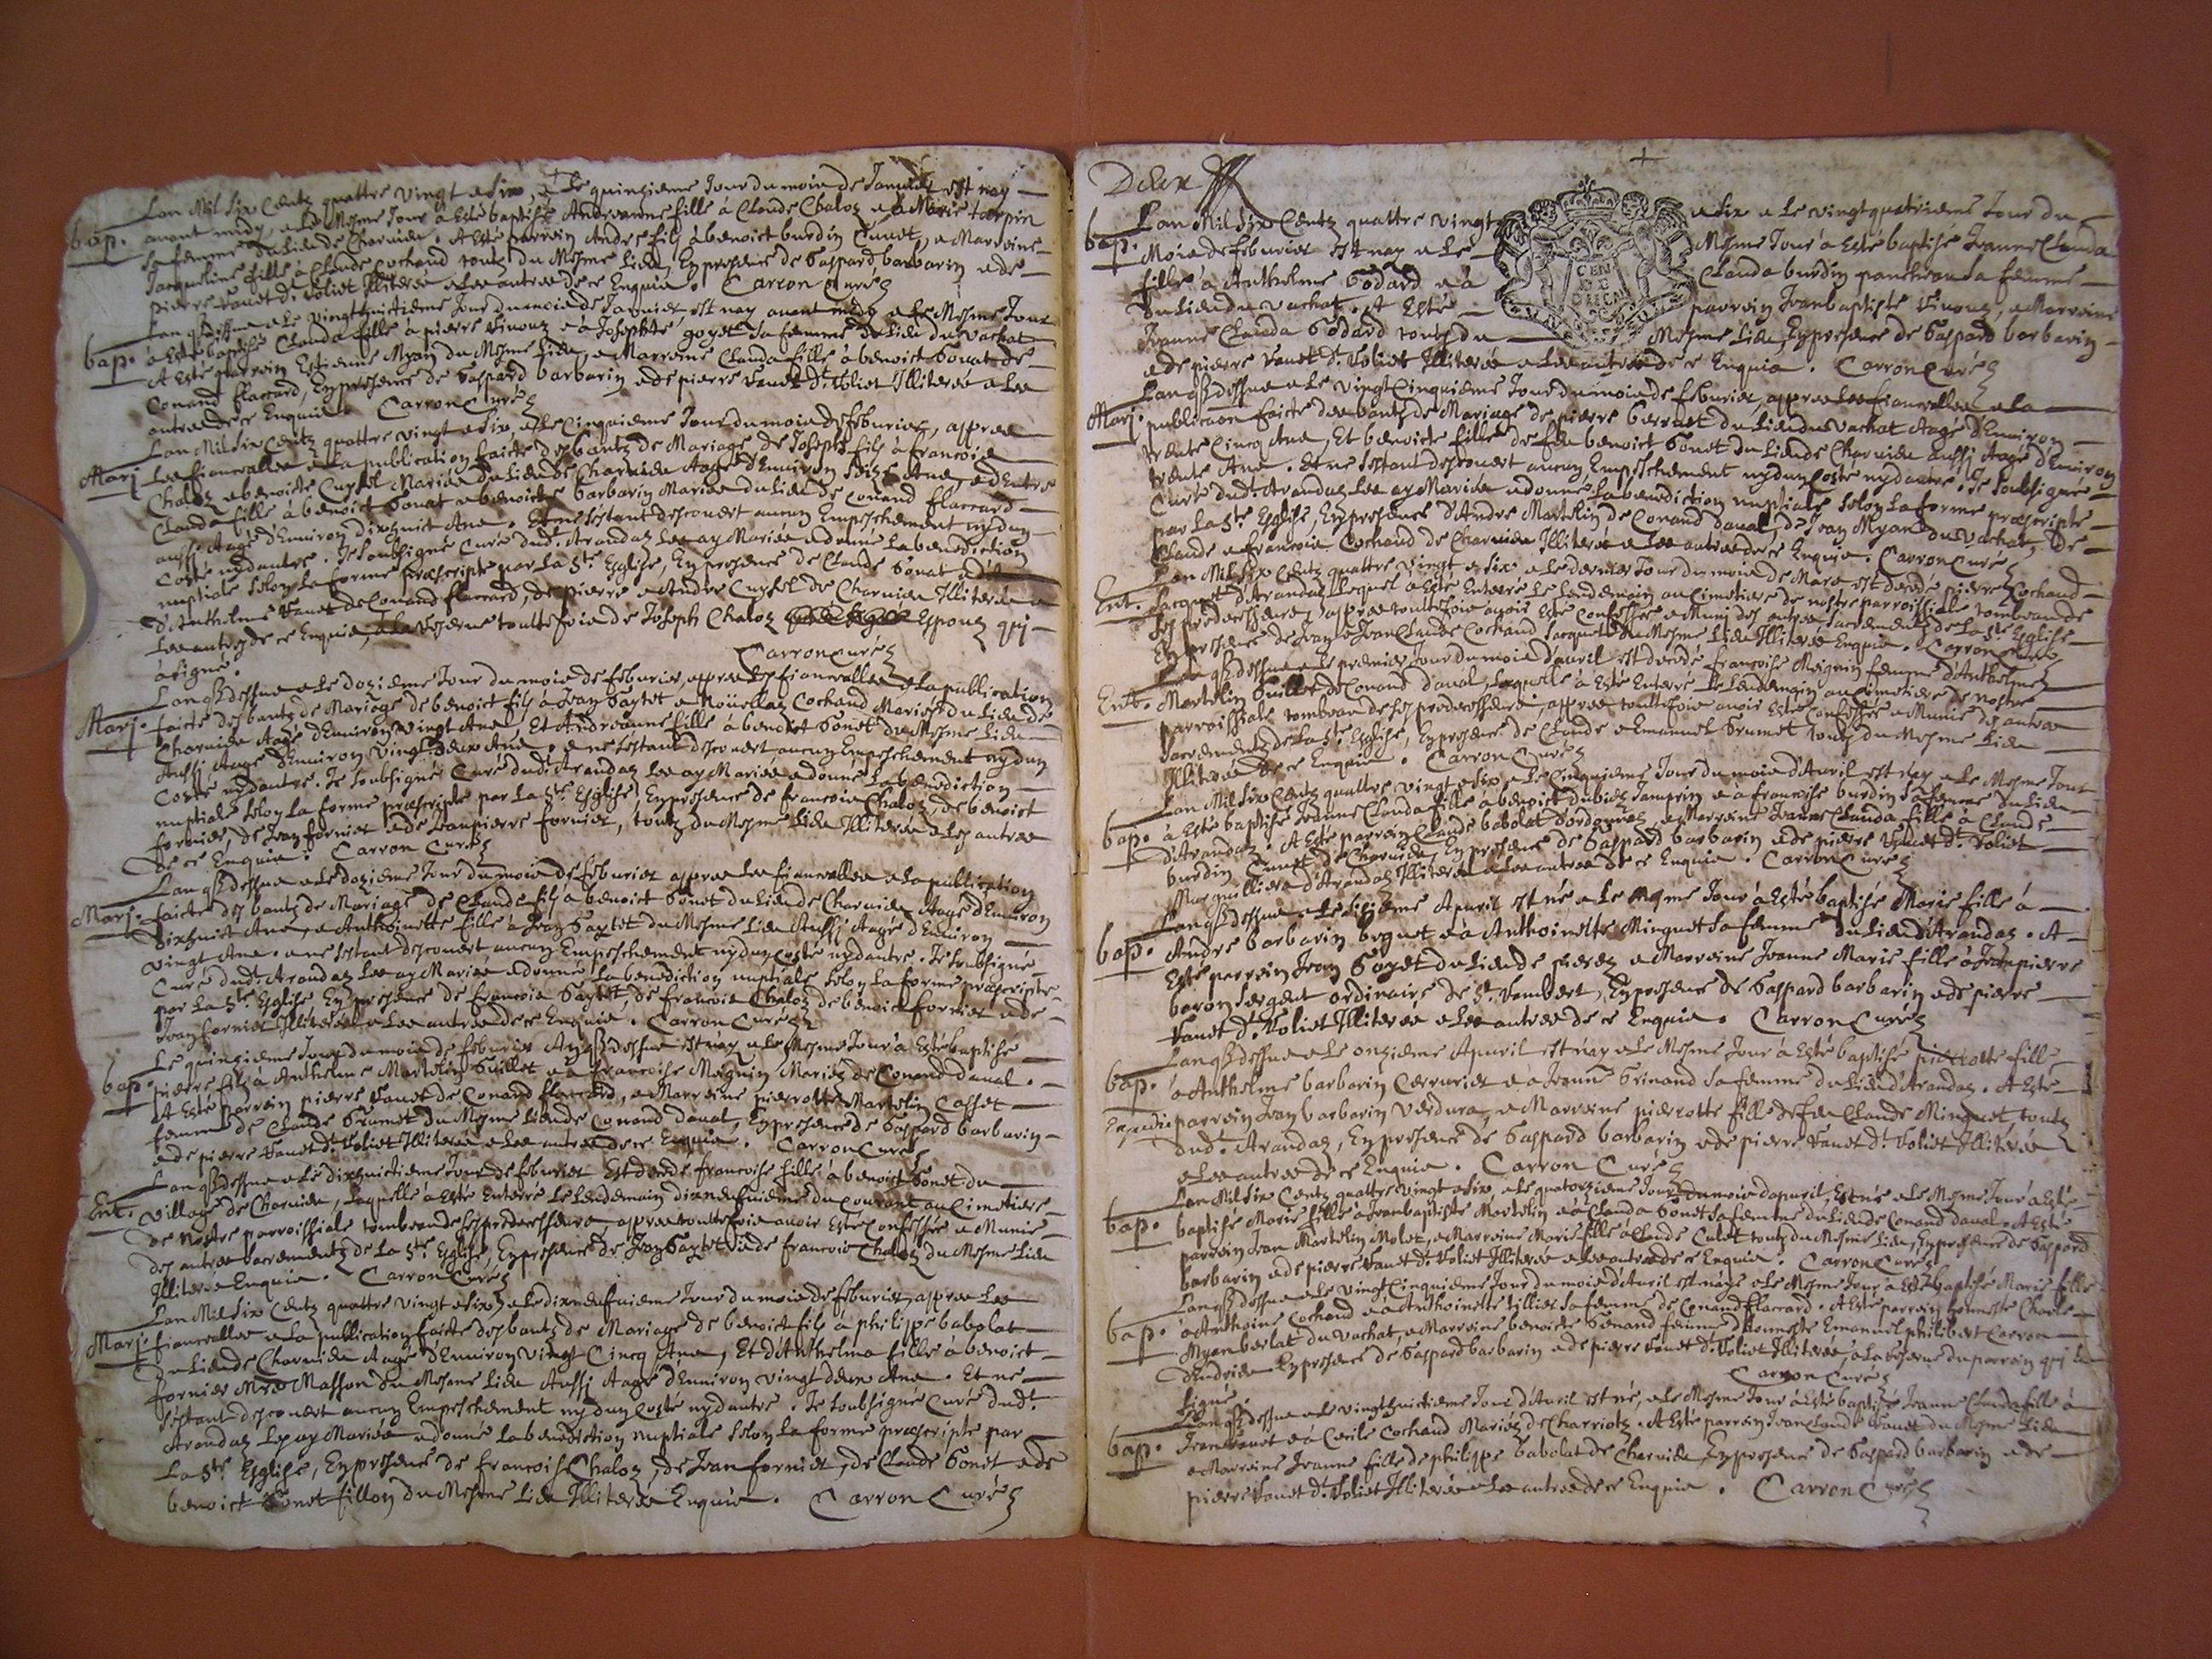 Lan Mil Six Centz quattre vingt e Six, e Le quinzieme Jour du mois de Januier est nay
bap. auant midy, e Le Mesme Jour à Esté baptisée Andreanne fille à Claude Chaloz e à Marie tarpin
sa femme du Lieu de Charuieu. A Esté parrein Andre fils à benoict burdin Cunet, e Marreine
Jacqueline fille à Claude Cochand toutz du Mesme Lieu, En presence de Gaspard barbarin e de
pierre Vanet dt. Voliet Illiterés e Les autres de ce Enquis. Carron Curé
Lan qs. dessus e Le vingthuictieme Jour du mois de Januier est nay auant midy e Le Mesme Jour
bap. à Esté baptisée Clauda fille à pierre e à Josephte goyet sa femme du Lieu du Vachat
A Esté parrein Estienne Myan du Mesme Lieu, e Marreine Clauda fille à benoict Gonat de
Conand flaccard, En presence de Gaspard barbarin e de pierre Vanet dt. Voliet Illiterés e Les
autres de ce Enquis. Carron Curé
Lan Mil Six Centz quattre vingt e Six, e Le Cinquieme Jour du mois de feburier, appres
Marj. Les fiancealles e La publication faicte des bantz de Mariage de Joseph fils à francois
Chaloz e benoicte Cuysel Mariés du Lieu de Charuieu Aagé d'Enuiron seize Ans, e d'Entre
Clauda fille à benoict Gonat e benoicte barbarin Mariés du Lieu de Conand flaccard
aussi Aagé d'Enuiron dixhuict Ans. Et ne sestant descouuert aucun Empeschement ny dun
Costé ny dautre. Je soubsigné Curé dudt. Arandaz Les ay Mariés e donné La benediction
nuptiale selon La forme prescripte par La Ste. Esglise, En presence de Claude Gonat
d'Anthelme Vanet de Conand flaccard, de pierre e Andre Cuysel de Charuieu Illiterés e
Les autres de ce Enquis, à La reserue touttefois de Joseph Chaloz Espoux qui
à signé. Carron Curé
Lan qs. dessus e Le dozieme Jour du mois de feburier, appres Les fiancealles e La publication
Marj. faicte des bantz de Mariage de benoict fils à Jean Gaytet e Noüellaz Cochand Mariés du Lieu de
Charuieu Aagé d'Enuiron vingt Ans, Et Andreanne fille à benoict Gonet du Mesme Lieu
Aussi Aagé d'Enuiron vingt deux Ans. e ne sestant descouuert aucun Empeschement ny dun
Costé ny dautre. Je soubsigné Curé dudt. Arandaz Les ay Mariés e donné La benediction
nuptiale selon La forme prescripte par La Ste. Esglise, En presence de francois Chaloz, de benoict
fornier, de Jean fornier e de Jeanpierre fornier, toutz du Mesme Lieu Illiterés e Les autres
de ce Enquis. Carron Curé
Lan qs. dessus e Le dozieme Jour du mois de feburier appres Les fiancealles e La publication
Marj. faicte des bantz de Mariage de Claude fils à benoict Gonet du Lieu de Charuieu Aagé d'Enuiron
dixhuict Ans, e Anthoinette fille à Jean Gaytet du Mesme Lieu Aussi Aagé d'Enuiron
vingt Ans. e ne sestant descouuert aucun Empeschement ny dun Costé ny dautre. Je soubsigné
Curé dudt. Arandaz Les ay Mariés e donné La benediction nuptiale selon La forme prescripte
par La Ste. Esglise, En presence de francois Gaytet, de francois Chaloz de benoict fornier e de
Jean fornier Illiterés e Les autres de ce Enquis. Carron Curé
Le quinzieme Jour du mois de feburier An qs. dessus est nay e Le Mesme Jour à Esté baptisé
bap. pierre fils à Anthelme Martelin Guillet e à francoise Meignin Mariés de Conand daual.
A Esté parrein pierre Vanet de Conand flaccard, e Marreine pierrotte Martelin Casset
femme de Claude Grumet du Mesme Lieu de Conand daual, En presence de Gaspard barbarin
e de pierre Vanet dt. Voliet Illiterés e Les autres de ce Enquis. Carron Curé
Lan qs. dessus e Le dixhuictieme Jour de feburier Est decedé francoise fille à benoict Gonet du
Ent. Village de Charuieu, Laquelle à Esté Enterré Le Lendemain dixneufuieme du Courant au Cimetiere
de Nostre parroissiale tombeau de ses predecesseurs, appres touttefois auoir Esté Confessée e Munie
des autres sacrementz de La Ste. Esglise, En presence de Jean Gaytet e de francois Chaloz du Mesme Lieu
Illiterés Enquis. Carron Curé
Lan Mil Six Centz quattre vingt e Six, e Le dixneufuieme Jour du mois de feburier, appres Les
Marj. fiancealles e La publication faicte des bantz de Mariage de benoict fils à philippe babolat
du Lieu de Charuieu Aagé d'Enuiron vingt Cincq Ans, Et d'Anthelma fille à benoict
fornier Mre. Masson du Mesme Lieu Aussi Aagé d'Enuiron vingt deux Ans. Et ne
sestant descouuert aucun Empeschement ny dun Costé ny dautre. Je soubsigné Curé dudt.
Arandaz Les ay Mariés e donné La benediction nuptiale selon La forme prescripte par
La Ste. Esglise, En presence de francois Chaloz, de Jean fornier, de Claude Gonet e de
benoict Gonet fillon du Mesme Lieu Illiterés Enquis. Carron Curé
Deux
Lan Mil Six Centz quattre vingt e Six e Le vingtquatrieme Jour du
bap. Mois de feburier est nay e Le Mesme Jour à Esté baptisée Jeanne Clauda
fille à Anthelme Godard e à Clauda burdin pancheau sa femme
du Lieu du Vachat. A Esté parrein Jeanbaptiste e Marreine
Jeanne Clauda Godard toutz du Mesme Lieu, En presence de Gaspard barbarin
e de pierre Vanet dt. Voliet Illiterés e Les autres de ce Enquis. Carron Curé
Lan qs. dessus e Le vingtCinquieme Jour du mois de feburier, appres Les fiancealles e La
Marj. publication faicte des bantz de Mariage de pierre berruet du Lieu du Vachat Aagé d'Enuiron
trente Cincq Ans, Et benoicte fille de feu benoict Gonet du Lieu de Charuieu Aussi Aagé d'Enuiron
trente Ans. Et ne sestant descouuert aucun Empeschement ny dun Costé ny dautre. Je soubsigné
Curé dudt. Arandaz Les ay Mariés e donné La benediction nuptiale selon La forme prescripte
par La Ste. Esglise, En presence d'Andre Martelin de Conand daual, de Jean Myan du Vachat, de
Claude e francois Cochand de Charuieu Illiterés e Les autres de ce Enquis. Carron Curé
Lan Mil Six Centz quattre vingt e Six e Le dernier Jour du mois de Mars est decedé pierre Cochand
Ent. Jacquet d'Arandaz Lequel à Esté Enterré Le Lendemain au Cimetiere de nostre parroissiale tombeau de
ses predecesseurs, appres touttefois auoir Esté Confessé e Muni des autres sacrementz de La Ste. Esglise
En presence de Jean e JeanClaude Cochand Jacquet du Mesme Lieu Illiterés Enquis. Carron Curé
Lan qs. dessus e Le premier Jour du mois d'auril est decedé francoise Meignin femme d'Anthelme
Ent. Martelin Guillet de Conand daual, Laquelle à Esté Enterré Le Lendemain au Cimetiere de nostre
parroissiale tombeau de ses predecesseurs, appres touttefois auoir Esté Confessée e Munie des autres
sacrementz de La Ste. Esglise, En presence de Claude e Emanuel Grumet toutz du Mesme Lieu
Illiterés de ce Enquis. Carron Curé
Lan Mil Six Centz quattre vingt e Six e Le Cinquieme Jour du mois d'Auril est nay e Le Mesme Jour
bap. à Esté baptisée Jeanne Clauda fille à benoict dubiez Jamprin e à francoise burdin sa femme du Lieu
d'Arandaz. A Esté parrein Claude babolat e Marreine Jeanne Clauda fille à Claude
burdin Cunet de Charuieu, En presence de Gaspard barbarin e de pierre Vanet dt. Voliet
Marguilliers d'Arandaz Illiterés e Les autres de ce Enquis. Carron Curé
Lan qs. dessus e Le sixieme Apuril est né e Le mesme Jour à Esté baptisé Marie fille à
bap. Andre barbarin begnet e à Anthoinette Minguet sa femme du Lieu d'Arandaz. A
Esté parrein Jean Goyet du Lieu de e Marreine Jeanne Marie fille à Jeanpierre
baron sergent ordinaire de St. Rambert, En presence de Gaspard barbarin e de pierre
Vanet dt. Voliet Illiterés e Les autres de ce Enquis. Carron Curé
Lan qs. dessus e Le onzieme Apuril est nay e Le Mesme Jour à Esté baptisé pierrotte fille
bap. à Anthelme barbarin e à Jeanne Grinand sa femme du Lieu d'Arandaz. A Esté
Expedié parrein Jean barbarin Verdura, e Marreine pierrotte fille de feu Claude Minguet, toutz
dudt. Arandaz, En presence de Gaspard barbarin e de pierre Vanet dt. Voliet Illiterés
e Les autres de ce Enquis. Carron Curé
Lan Mil Six Centz quattre vingt e Six e Le quatorzieme Jour du mois dapuril, Est né e Le Mesme Jour à Esté
bap. baptisé Marie fille à Jeanbaptiste Martelin e à Clauda Gonet sa femme du Lieu de Conand daual. A Esté
parrein Jean Martelin Molet, e Marreine Marie fille à Claude Culet toutz du Mesme Lieu, En presence de Gaspard
barbarin e de pierre Vanet dt. Voliet Illiterés e Les autres de ce Enquis. Carron Curé
Lan qs. dessus e Le vingtCinquieme Jour du mois d'Auril est e Le Mesme Jour à Esté baptisé Marie fille
bap. à Anthoine Cochand e à Anthoinette tillier sa femme de Conand flaccard. A Esté parrein honneste Charle
Myan berlat du Vachat, e Marreine benoicte Genand femme d'honneste Emanuel philibert Carron
d'Indrieu En presence de Gaspard barbarin e de pierre Vanet dt. Voliet Illiterés, à La reserue du parrein qui à
signé. Carron Curé
Lan qs. dessus e Le vingthuictieme Jour d'Auril est né, e Le Mesme Jour à Esté baptisé Jeanne Clauda fille à
bap. Jean Vanet e à Cecile Cochand Mariés de Charriotz. A Esté parrein JeanClaude Vanet du Mesme Lieu
e Marreine Jeanne fille de philippe babolat de Charuieu, En presence de Gaspard barbarin e de
pierre Vanet dt. Voliet Illiterés e Les autres de ce Enquis. Carron Curé